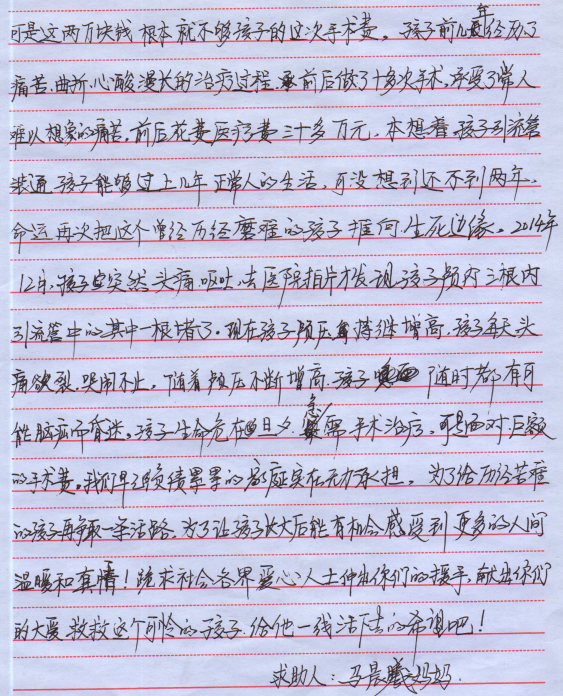 可是这两万块钱根本就不够孩子的这次手术费。孩子前几年经历了
痛苦、曲折、心酸漫长的治疗过程、前后做了十多次手术,承受了常人
难以想象的痛苦,前后花费医疗费三十多万元。本想着孩子引流管
装通孩子能够过上几年正常人的生活,可没想到还不到两年,
命运再次把这个曾经历经磨难的孩子推向生死边缘。2014年
12月,孩子突然头痛、呕吐、去医院拍片才发现孩子颅内三根内
引流管中的其中一根堵了。现在孩子颅压持续增高,孩子每天头
痛欲裂、哭闹不止,随着颅压不断增高,孩子随时都有可
能脑疝而昏迷,孩子生命危在旦夕,急需手术治疗,可是面对巨额
的手术费,我们早已负债累累的家庭实在无力承担。为了给历经苦难
的孩子再争取一条活路、为了让孩子长大后能有机会感受到更多的人间
温暖和真情!跪求社会各界爱心人士伸出你们的援手,献出你们
的大爱救救这个可怜的孩子,给他一线活下去的希望吧!
求助人:马晨曦妈妈.